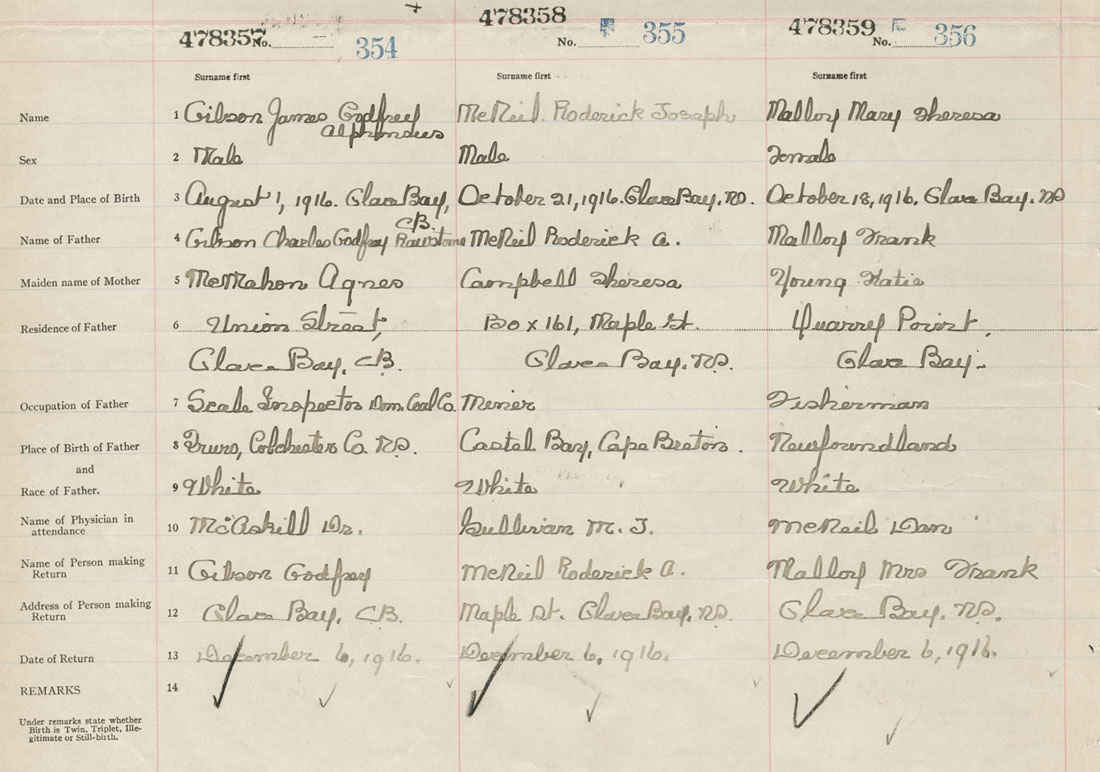 478357 No. 354 478358 No. 355 478359 No. 356
Surname first Surname first Surname first
Name 1 Gibson James Godfrey McNeil Roderick Joseph Malloy Mary Theresa
Alphonsus
Sex 2 Male Male Female
Date and Place of Birth 3 August 1, 1916. Glace Bay, October 21, 1916. Glace Bay. NS. October 18, 1916. Glace Bay. NS
C.B.
Name of Father 4 Gibson Charles Godfrey McNeil Roderick A. Malloy Frank
Maiden name of Mother 5 McMahon Agnes Campbell Theresa Young Katie
Residence of Father 6 Union Street, Box 161, Maple St. Quarry Point,
Glace Bay, C.B. Glace Bay. N.S. Glace Bay.
Occupation of Father 7 Scale Inspector Dom. Coal Co. Miner Fisherman
Place of Birth of Father 8 Truro, Colchester Co. N.S. Castel Bay, Cape Breton. Newfoundland
and
Race of Father. 9 White White White
Name of Physician in
attendance 10 McAskill Dr. Sullivan M. J. McNeil Dan
Name of Person making
Return 11 Gibson Godfrey McNeil Roderick A. Malloy Mrs Frank
Address of Person making
Return 12 Glace Bay, C.B. Maple St. Glace Bay. N.S. Glace Bay. N.S.
Date of Return 13 December 6, 1916. December 6, 1916. December 6, 1916.
REMARKS 14
Under remarks state whether
Birth is Twin, Triplet, Ille-
gitimate or Still-birth.